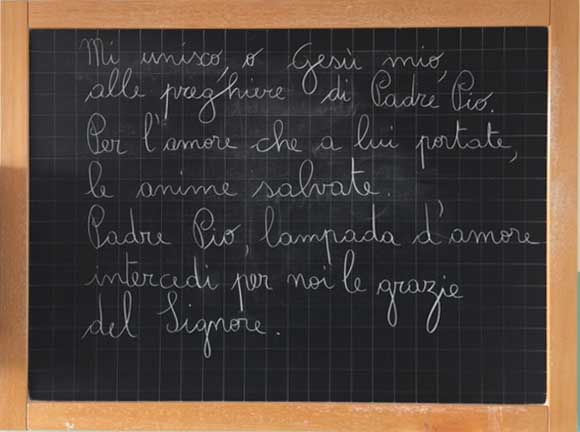 Mi unisco, o Gesù mio,
alle preghiere di Padre Pio.
Per l'amore che a lui portate,
le anime salvate.
Padre Pio, lampada d'amore
intercedi per noi le grazie
del Signore.